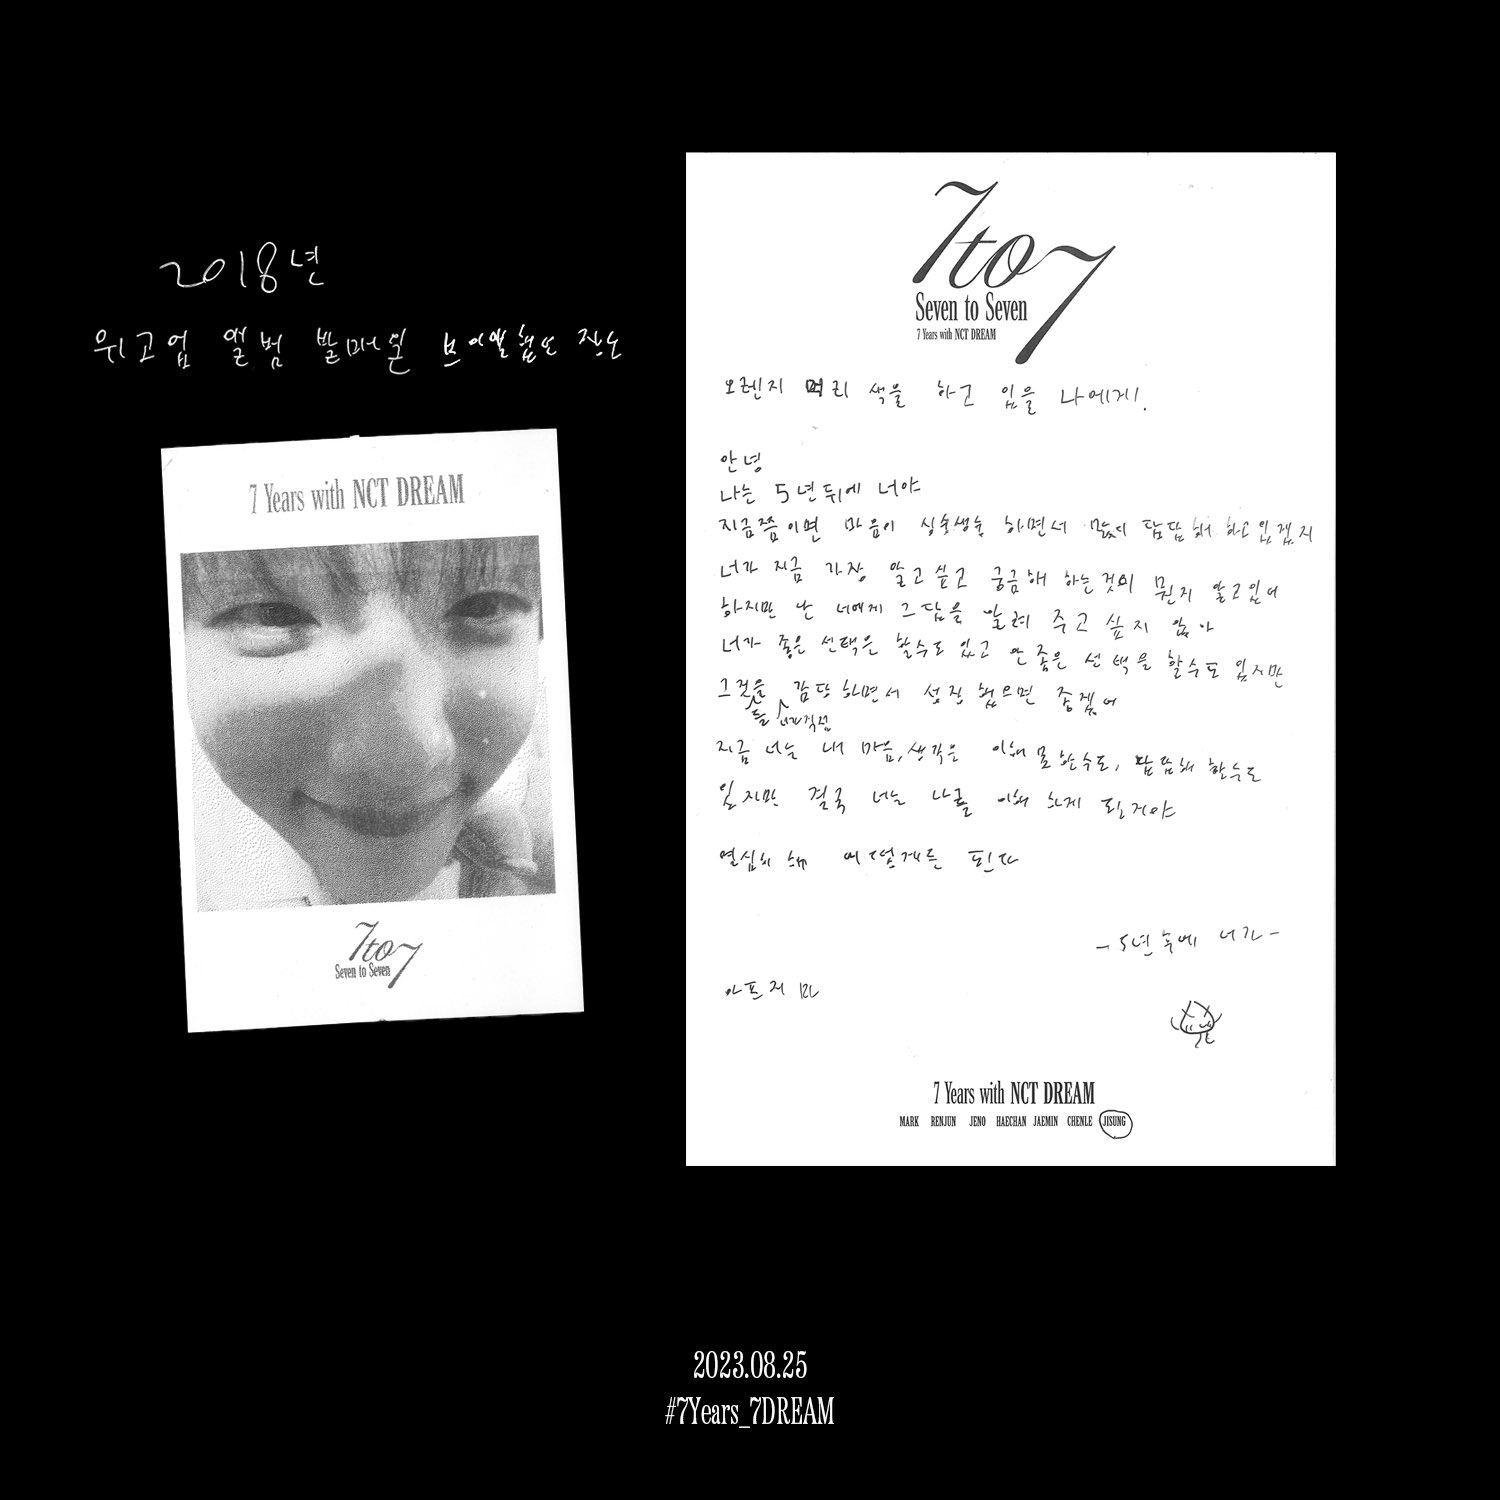 2018년
위고업 앨범 발매일 브이앱했던 장소
7 Years with NCT DREAM
7to7
Seven to Seven
7to7
Seven to Seven
7 Years with NCT DREAM
오렌지 머리 색을 하고 있을 나에게!
안녕
나는 5년뒤에 너야
지금쯤이면 마음이 싱숭생숭 하면서 많이 답답해 하고있겠지
너가 지금 가장 알고싶고 궁금해 하는것이 뭔지 알고있어
하지만 난 너에게 그답을 알려 주고 싶지 않아
너가 좋은 선택은 할수도 있고 안 좋은 선택을 할수도 있지만
그것들을 너가직접 감당하면서 성장 했으면 좋겠어
지금 너는 내 마음, 생각은 이해 못 할수도, 답답해 할수도
있지만 결국 너는 나를 이해 하게 될거야
열심히 해 어떻게든 된다
-5년 후에 너가-
아프지 마
7 Years with NCT DREAM
MARK RENJUN JENO HAECHAN JAEMIN CHENLE JISUNG
2023.08.25
#7Years_7DREAM